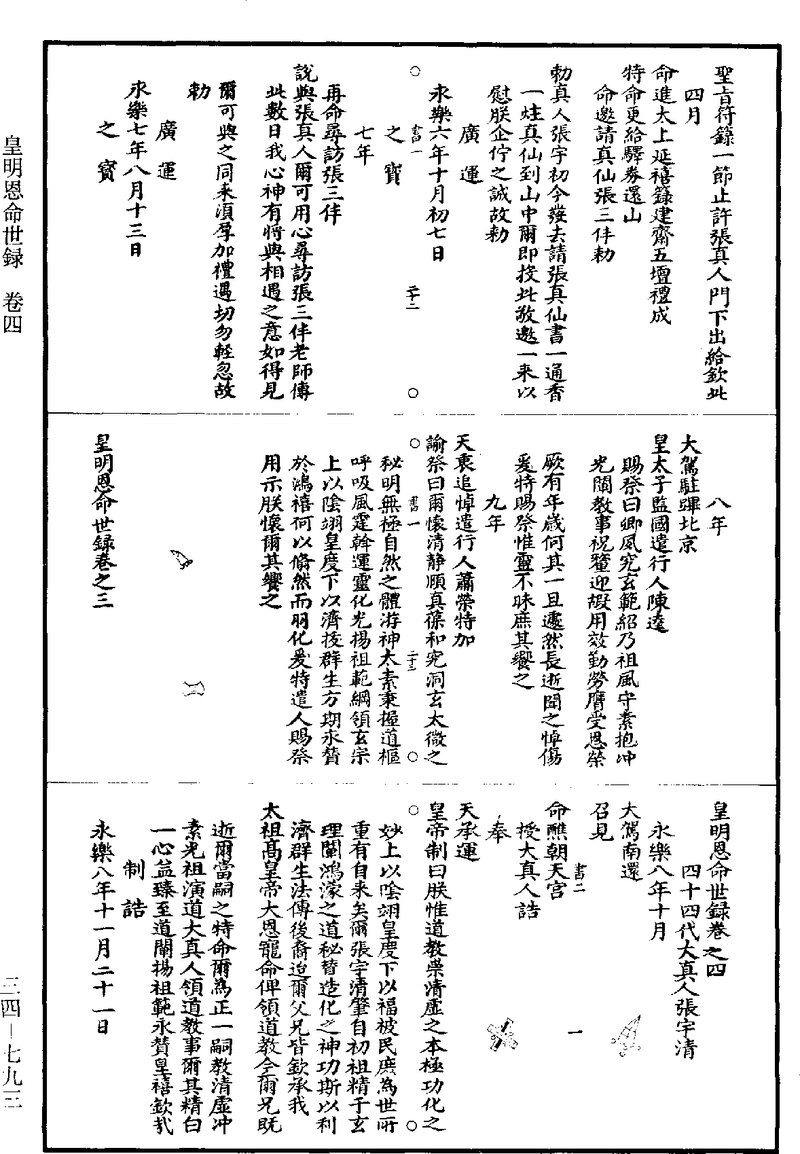 聖旨符籙一節止許張真人門下出給欽此
四月
命進太上延禧籙建齋五壇禮成
特命更給驛券還山
命邀請真仙張三仹勅
勅真人張宇初今發去請張真仙書一通香
一炷真仙到山中爾即投此敬邀一来以
慰朕企佇之誠故勅
廣運
永樂六年十月初七日
書一
二十二
之寶
七年
再命尋訪張三仹
說與張真人爾可用心尋訪張三仹老師傳
此數日我心神有將與相遇之意如得見
爾可與之同来湏厚加禮遇切勿輕忽故
勅
廣運
永樂七年八月十三日
之寶
八年
大駕駐蹕北京
皇太子監國遣行人陳逵
賜祭曰卿夙究玄範紹乃祖風守素抱冲
光闡教事祝釐迎嘏用效勤勞膺受恩榮
厥有年歲何其一旦遽然長逝聞之悼傷
爰特賜祭惟靈不昧庶其饗之
九年
天衷追悼遣行人蕭榮特加
諭祭曰爾懷清静頤真葆和究洞玄太微之
書一
二十三
秘明無極自然之體游神太素秉握道樞
呼吸風霆斡運靈化光揚祖範綱領玄宗
上以陰翊皇度下以濟拔群生方期永贊
於鴻禧何以翛然而羽化爰特遣人賜祭
用示朕懷爾其饗之
皇明恩命世録卷之三
皇明恩命世録卷之四
四十四代大真人張宇清
永樂八年十月
大駕南還
召見
書二
一
命醮朝天宫
授大真人誥
奉
天承運
皇帝制曰朕惟道教崇清虛之本極功化之
妙上以陰翊皇度下以福被民庶為世所
重有自来矣爾張宇清肇自初祖精于玄
理闡鴻濛之道秘替造化之神功斯以利
濟群生法傳後裔迨爾父兄皆欽承我
太祖髙皇帝大恩寵命俾領道教今爾兄既
逝爾當嗣之特命爾為正一嗣教清虛冲
素光祖演道大真人領道教事爾其精白
一心益臻至道闡揚祖範永贊皇禧欽哉
制誥
永樂八年十一月二十一日
皇明恩命世録　卷四
三四－七九三